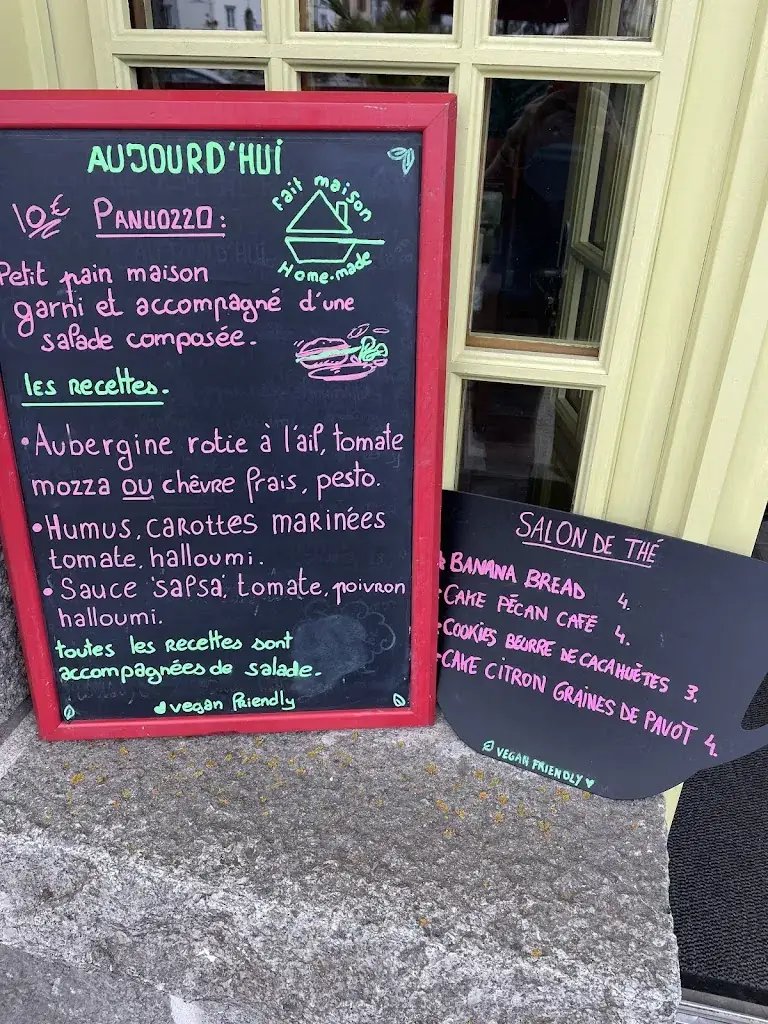 AUJOURD'HUI
fait maison
Home-made
10€ PANUOZZO:
Petit pain maison
garni et accompagné d'une
salade composée.
les recettes.
•Aubergine rotie à l'ail, tomate
mozza ou chêvre frais, pesto.
•Humus, carottes marinées
tomate, halloumi.
•Sauce 'salsa', tomate, poivron
halloumi.
toutes les recettes sont
accompagnées de salade.
vegan friendly
SALON DE THÉ
•BANANA BREAD 4.
•CAKE PÉCAN CAFÉ 4.
•COOKIES BEURRE DE CACAHUÈTES 3.
•CAKE CITRON GRAINES DE PAVOT 4.
VEGAN FRIENDLY